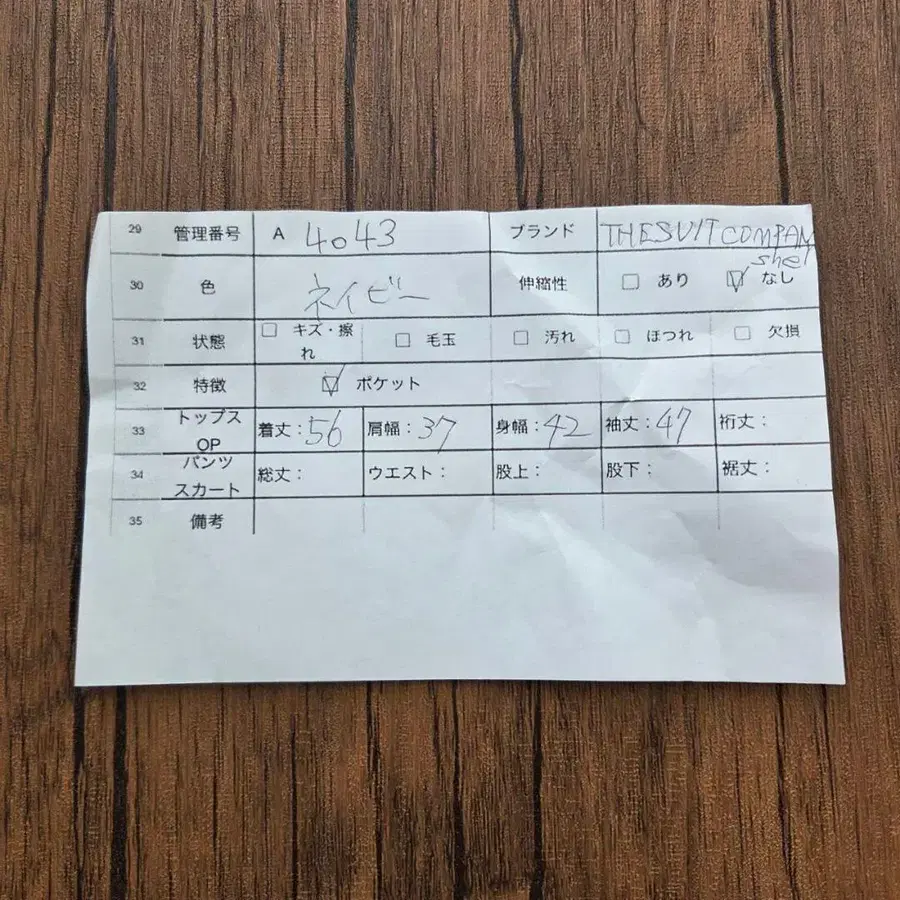 29 管理番号 A 4043 ブランド THE SUIT COMPAN
she
30 色 ネイビー 伸縮性 ☐ あり ☑ なし
31 状態 ☐ キズ・擦れ ☐ 毛玉 ☐ 汚れ ☐ ほつれ ☐ 欠損
32 特徴 ☑ ポケット
33 トップス OP 着丈:56 肩幅:37 身幅:42 袖丈:47 裄丈:
34 パンツ スカート 総丈: ウエスト: 股上: 股下: 裾丈:
35 備考